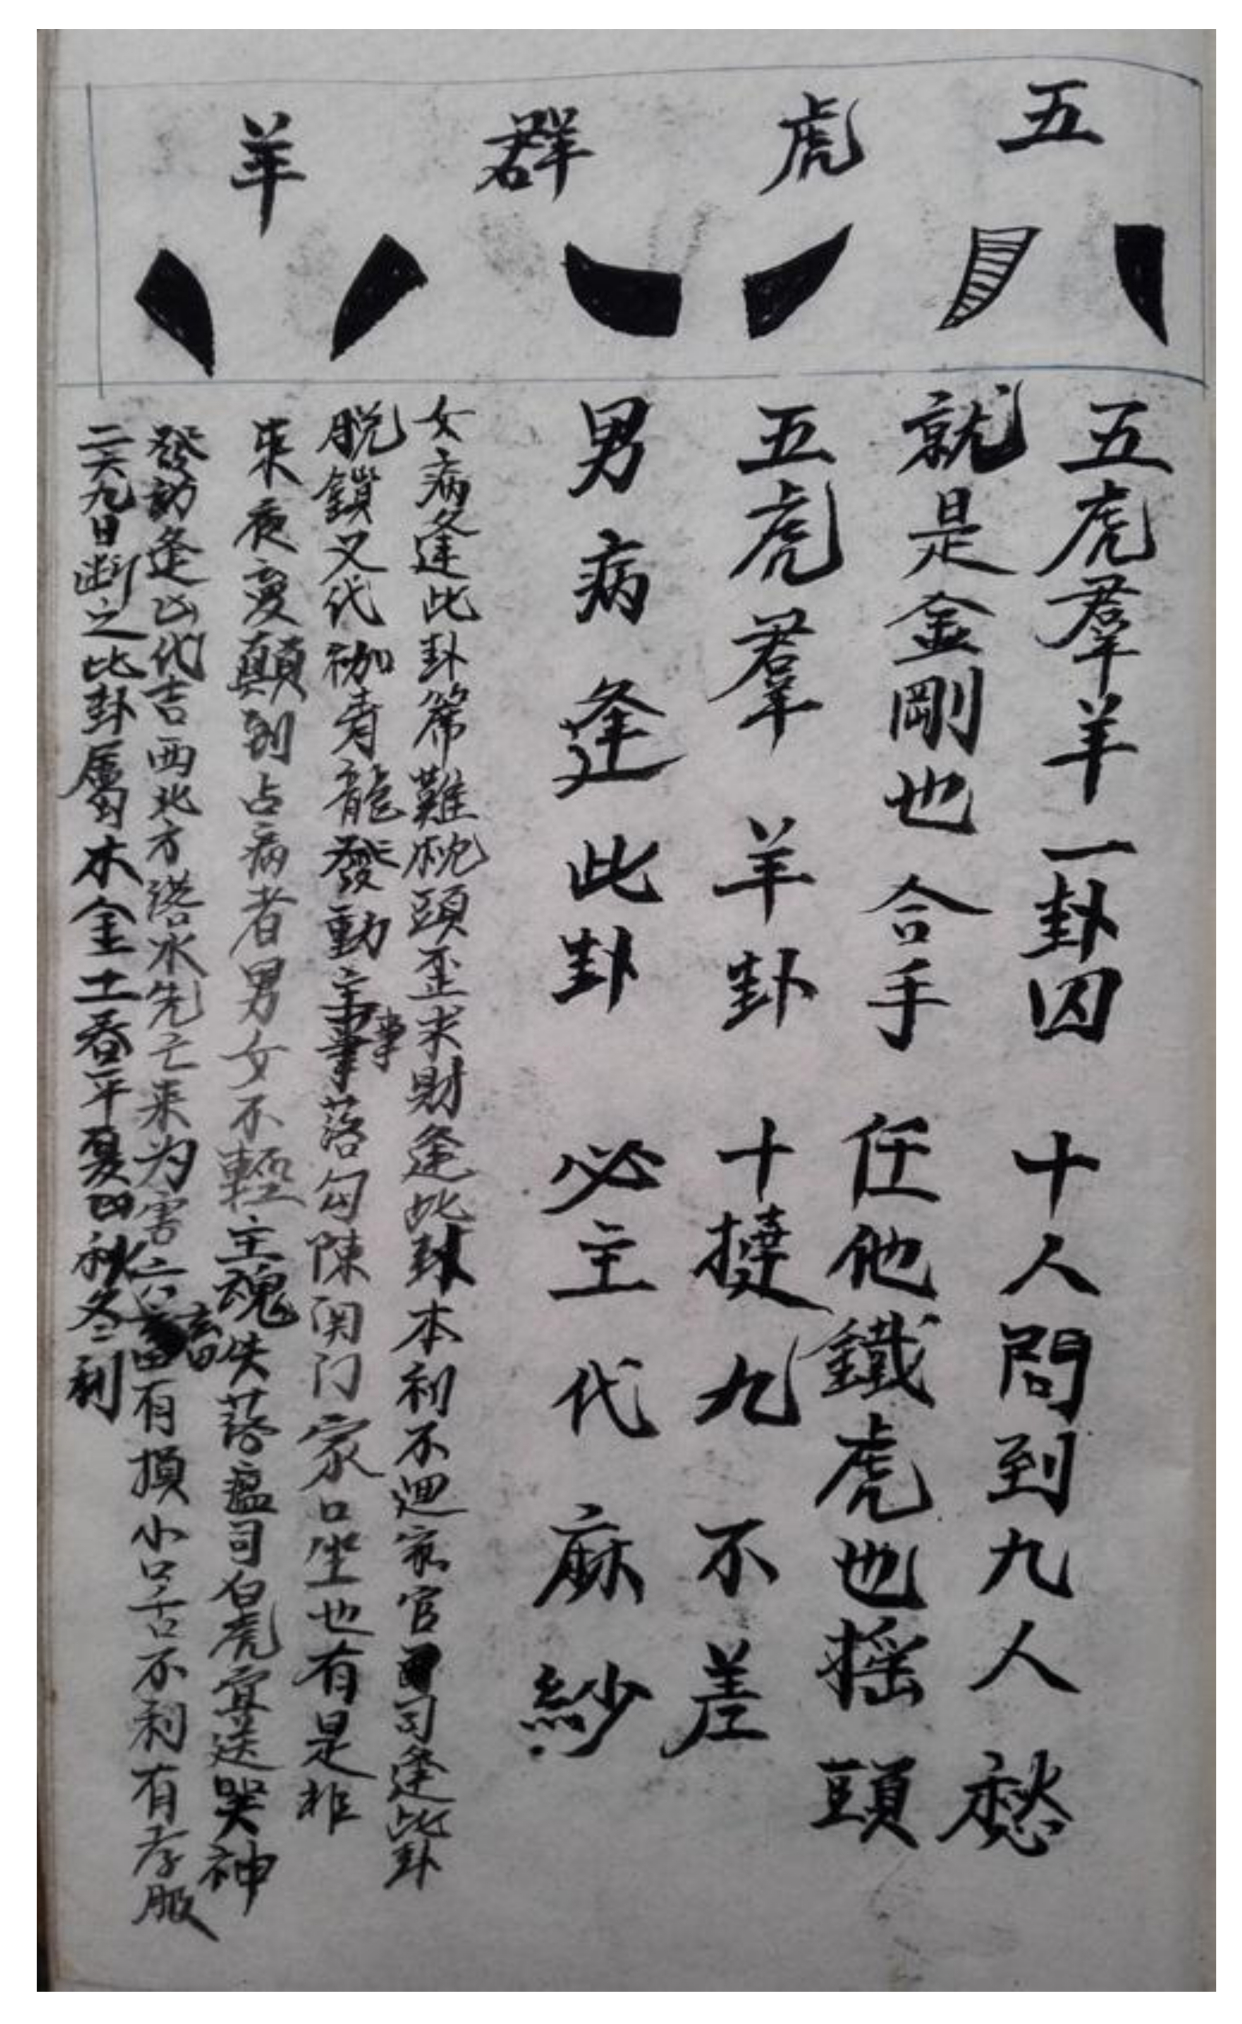 五虎群羊
五虎羣羊一卦囚 十人問到九人愁
就是金剛也合手 任他鐵虎也摇頭
五虎羣羊卦 十撻九不差
男病逢此卦 必主代麻紗
女病逢此卦簾難枕頭歪求財逢此卦本利不迴家官司逢此卦
脱鎖又代枷青龍發動主事落勾陳関门家口坐也有是非
来夜夢顛到占病者男女不輕主魂失落瘟司白虎宜送哭神
發動逢凶代吉西北方落水先亡来为害六畜有損小口舌不利有孝服
二六九日断之此卦属木金土春平夏凶秋冬二利